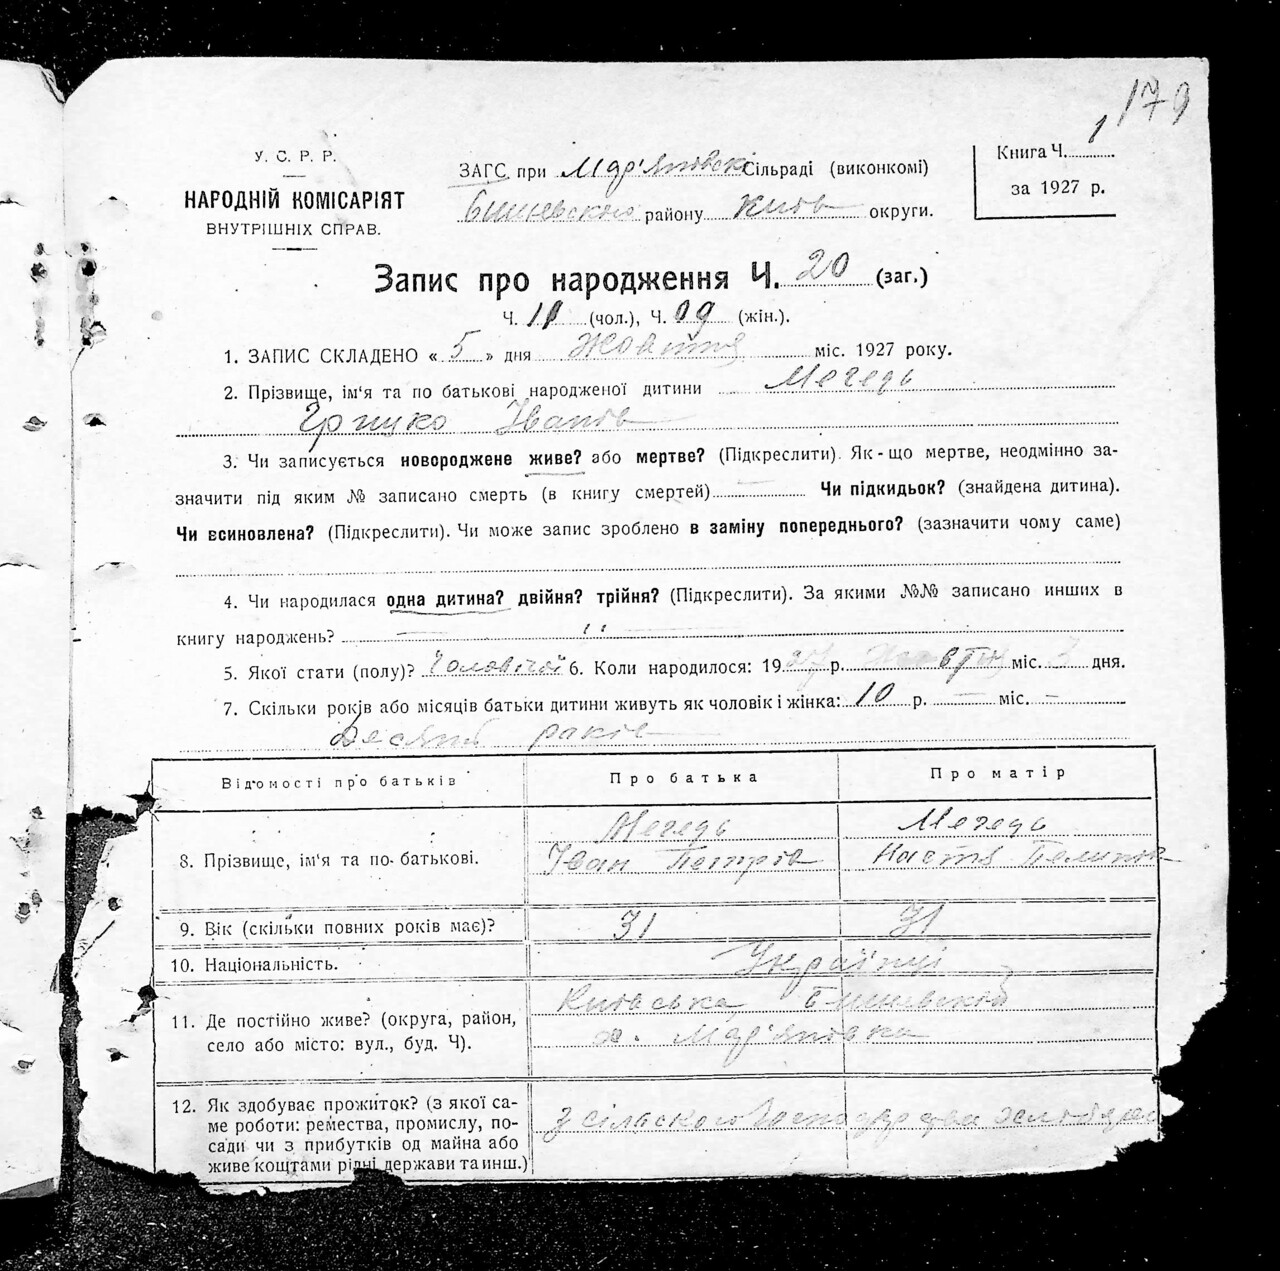 179
У. С. Р. Р.
НАРОДНІЙ КОМІСАРІЯТ
ВНУТРІШНІХ СПРАВ.
ЗАГС при Мар'яновск Сільраді (виконкомі)
району Київ округи.
Книга Ч. 1
за 1927 р.
Запис про народження Ч. 20 (заг.)
Ч. 11 (чол.), Ч. 09 (жін.).
1. ЗАПИС СКЛАДЕНО « 5 » дня Жовтня міс. 1927 року.
2. Прізвище, ім'я та по батькові народженої дитини Мегедь
Грицко Іванів
3. Чи записується новороджене живе? або мертве? (Підкреслити). Як-що мертве, неодмінно за-
значити під яким № записано смерть (в книгу смертей) Чи підкидьок? (знайдена дитина).
Чи всиновлена? (Підкреслити). Чи може запис зроблено в заміну попереднього? (зазначити чому саме)
4. Чи народилася одна дитина? двійня? трійня? (Підкреслити). За якими №№ записано инших в
книгу народжень?
5. Якої стати (полу)? Чоловічої 6. Коли народилося: 1927 р. Жовтня міс. дня.
7. Скільки років або місяців батьки дитини живуть як чоловік і жінка: 10 р. — міс. —
Десять раків
Відомості про батьків Про батька Про матір
8. Прізвище, ім'я та по-батькові. Мегедь Іван Петрів Мегедь Настя
9. Вік (скільки повних років має)? 31 31
10. Національність. Українці
11. Де постійно живе? (округа, район, Київська
село або місто: вул., буд. Ч). х. Мар'яновка
12. Як здобуває прожиток? (з якої са-
ме роботи: ремества, промислу, по- з сілского господарства
сади чи з прибутків од майна або
живе коштами рідні держави та инш.)